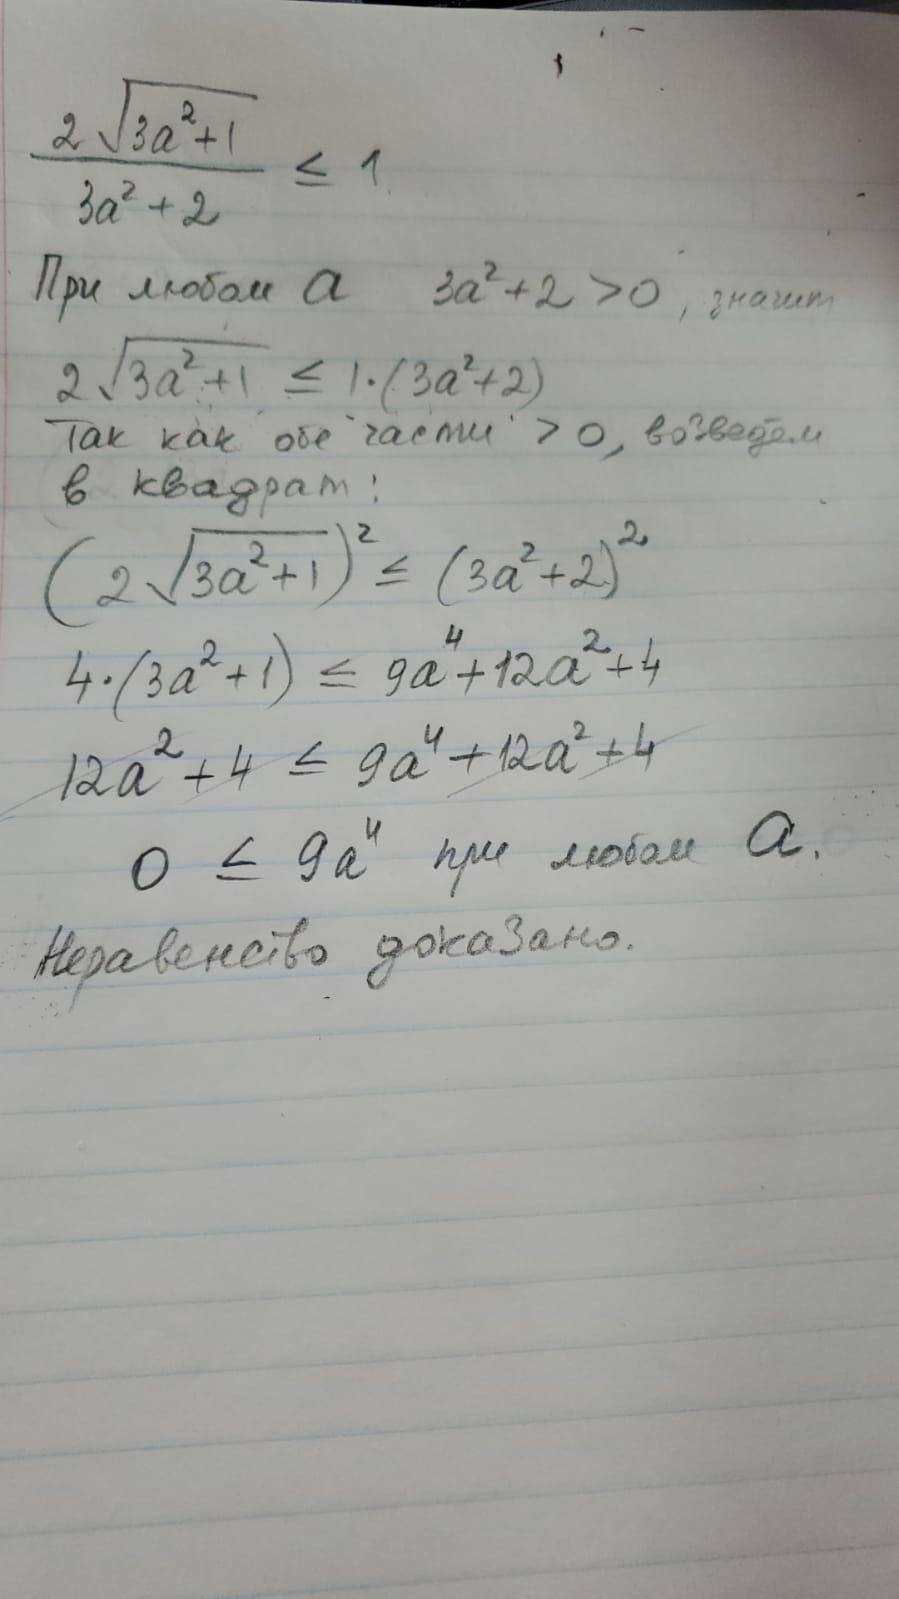 2√(3a²+1) / (3a²+2) ≤ 1
При любом a 3a²+2 >0, значит
2√(3a²+1) ≤ 1·(3a²+2)
Так как обе части >0, возведём
в квадрат:
(2√(3a²+1))² ≤ (3a²+2)²
4·(3a²+1) ≤ 9a⁴+12a²+4
12a²+4 ≤ 9a⁴+12a²+4
0 ≤ 9a⁴ при любом a.
Неравенство доказано.